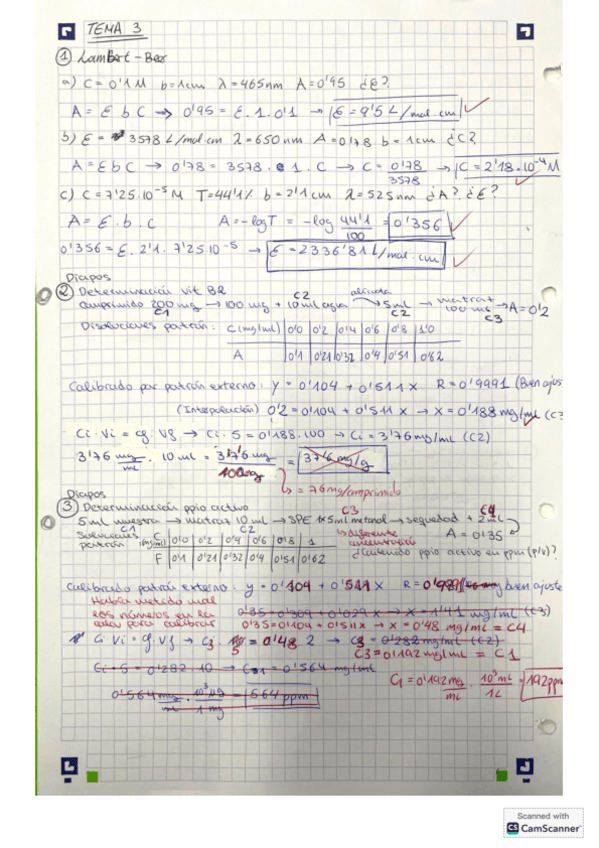 TEMA 3
① Lambert-Beer
a) C = 0'1 M b = 1cm λ = 465nm A = 0'95 ¿Ɛ?
A = Ɛ b C → 0'95 = Ɛ . 1 . 0'1 → Ɛ = 9'5 L/mol·cm
b) Ɛ = 3578 L/mol·cm λ = 650nm A = 0'78 b = 1cm ¿C?
A = Ɛ b C → 0'78 = 3578 · 1 . C → C = 0'78/3578 → C = 2'18·10⁻⁴ M
c) C = 7'25·10⁻⁵ M T = 44'1% b = 2'1 cm λ = 525nm ¿A? ¿Ɛ?
A = Ɛ . b . C A = -log T = -log 44'1/100 = 0'356
0'356 = Ɛ . 2'1 . 7'25·10⁻⁵ → Ɛ = 2336'81 L/mol·cm
Diapos
② Determinación vit B2
Comprimido 200 mg → 100 mg + 10 ml agua → alícuota 5 ml → matraz 100 mL → A = 0'2
C1 C2 C2 C3
Disoluciones patrón: C (mg/ml) 0'0 0'2 0'4 0'6 0'8 1'0
A 0'1 0'21 0'32 0'4 0'51 0'62
Calibrado por patrón externo: y = 0'104 + 0'511x R = 0'9991 (Buen ajus
(Interpolación) 0'2 = 0'104 + 0'511x → x = 0'188 mg/ml (C3
Ci·Vi = Cf·Vf → Ci·5 = 0'188·100 → Ci = 3'76 mg/ml (C2)
3'76 mg/ml · 10 ml = 37'6 mg/100mg = 376 mg/g
↳ = 76 mg/comprimido
Diapos
③ Determinación ppio activo
5 ml muestra → matraz 10 ml → SPE 1x5ml metanol → sequedad + 2mL
C1 C2 C3 C4
Soluciones patrón C (mg/ml) 0'0 0'2 0'4 0'6 0'8 1
F 0'1 0'21 0'32 0'4 0'51 0'62
↳ diferente concentración
A = 0'35
¿Contenido ppio activo en ppm (p/v)?
Calibrado patrón externo: y = 0'104 + 0'511x R = 0'9991 buen ajuste
Había metido mal los números en la calcu para calibrar
0'35 = 0'309 + 0'029x → x = 1'41 mg/ml (C3)
0'35 = 0'104 + 0'511x → x = 0'48 mg/mL = C4
Ci·Vi = Cf·Vf → C3 · 5 = 0'48 · 2 → C3 = 0'282 mg/ml (C2)
C3 = 0'192 mg/mL = C1
Ci·5 = 0'282·10 → C1 = 0'564 mg/ml
C1 = 0'192 mg/mL · 10³ mL/1L = 192 ppm
0'564 mg/ml · 10³ µg/1 mg = 564 ppm
Scanned with
CS CamScanner